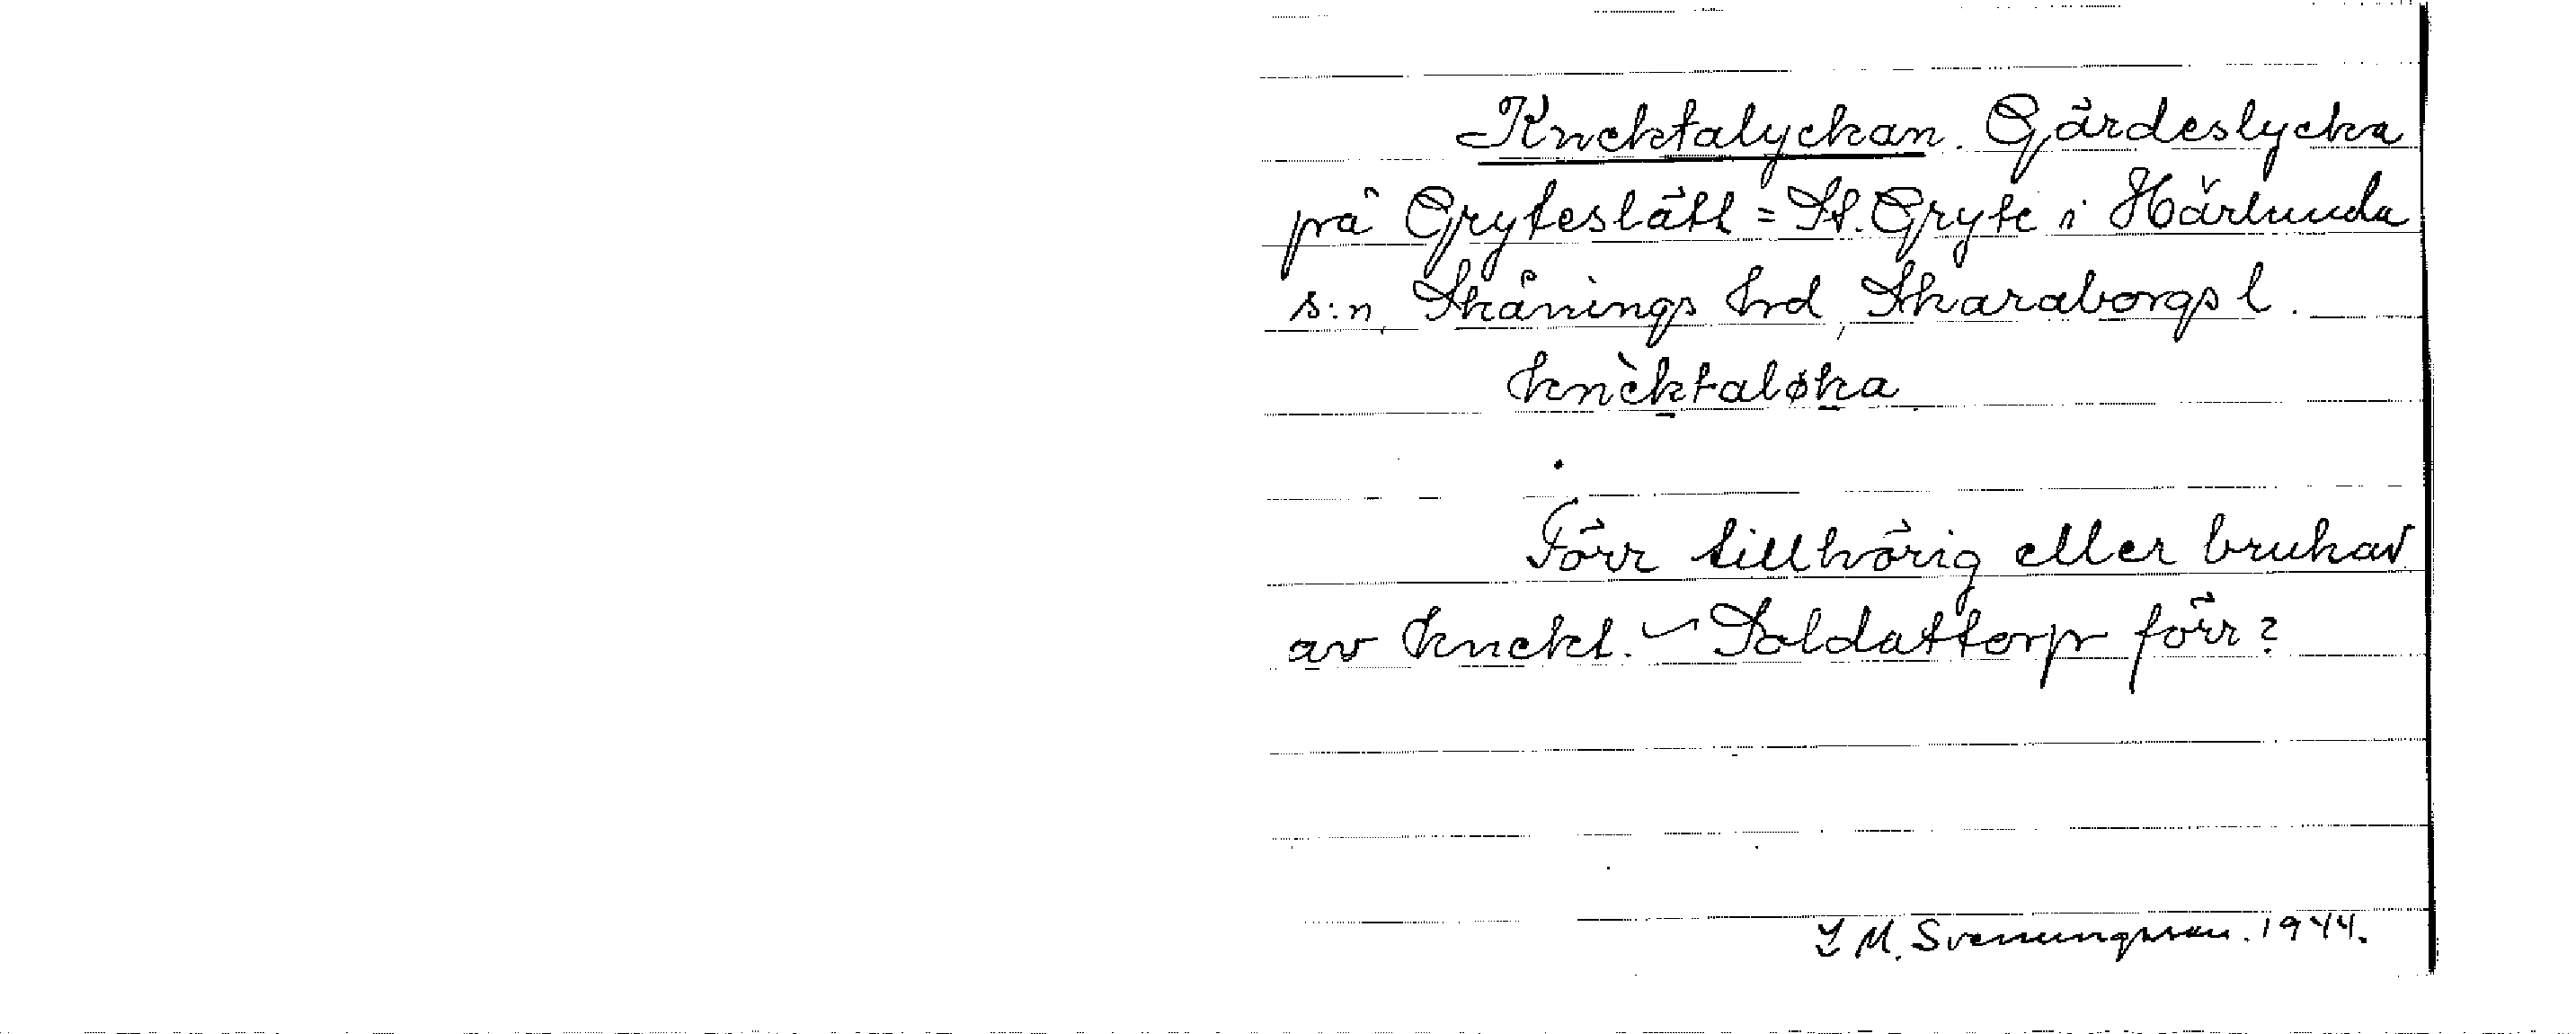 Knektalyckan. Gärdeslycka
på Gryteslätt = St. Gryte i Härlunda
s:n, Skånings hrd, Skaraborgs l.
knèktaløka
Förr tillhörig eller brukad
av knekt. – Soldattorp förr?
S. M. Svenungsson. 1944.